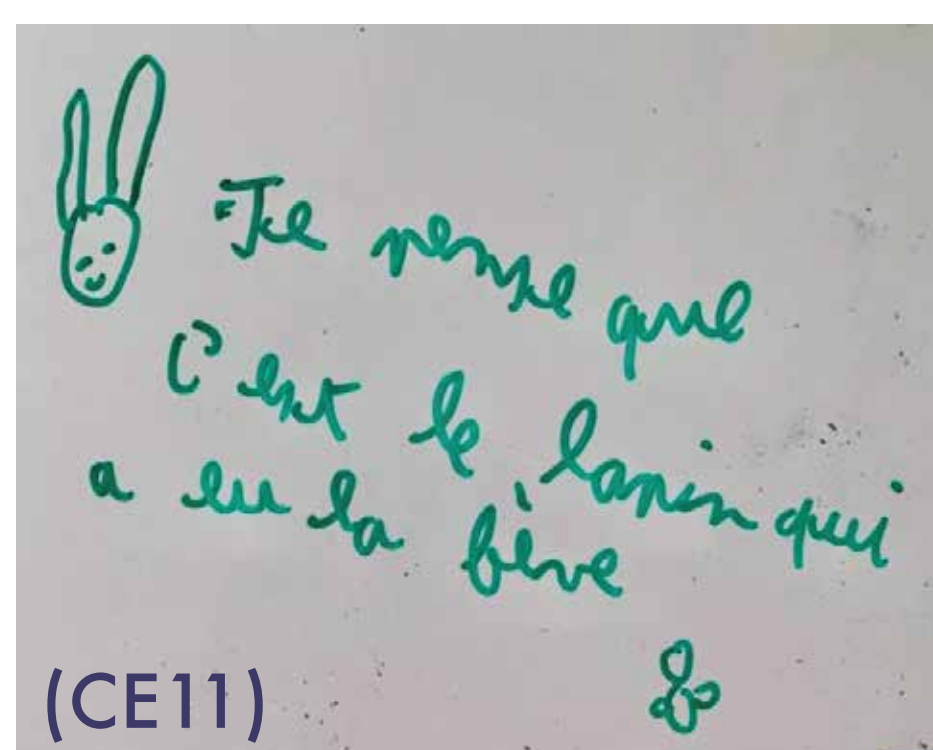 Je pense que
C'est le lapin qui
a eu la fève
(CE11)